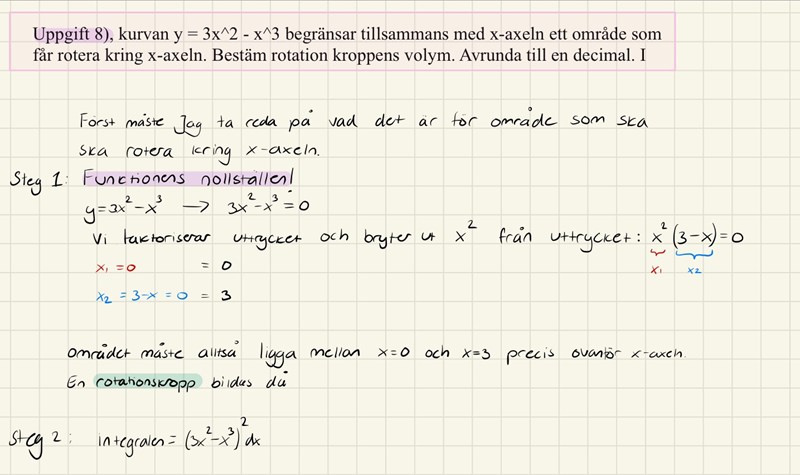 Uppgift 8), kurvan y = 3x^2 - x^3 begränsar tillsammans med x-axeln ett område som
får rotera kring x-axeln. Bestäm rotation kroppens volym. Avrunda till en decimal. I
Först måste Jag ta reda på vad det är för område som ska
ska rotera kring x-axeln.
Steg 1: Functionens nollställen!
y=3x²-x³ → 3x²-x³=0
Vi faktoriserar uttrycket och bryter ut x² från uttrycket: x²(3-x)=0
x₁ x₂
x₁ = 0 = 0
x₂ = 3-x = 0 = 3
området måste alltså ligga mellan x=0 och x=3 precis ovanför x-axeln.
En rotationskropp bildas då
Steg 2: integralen = (3x²-x³)² dx